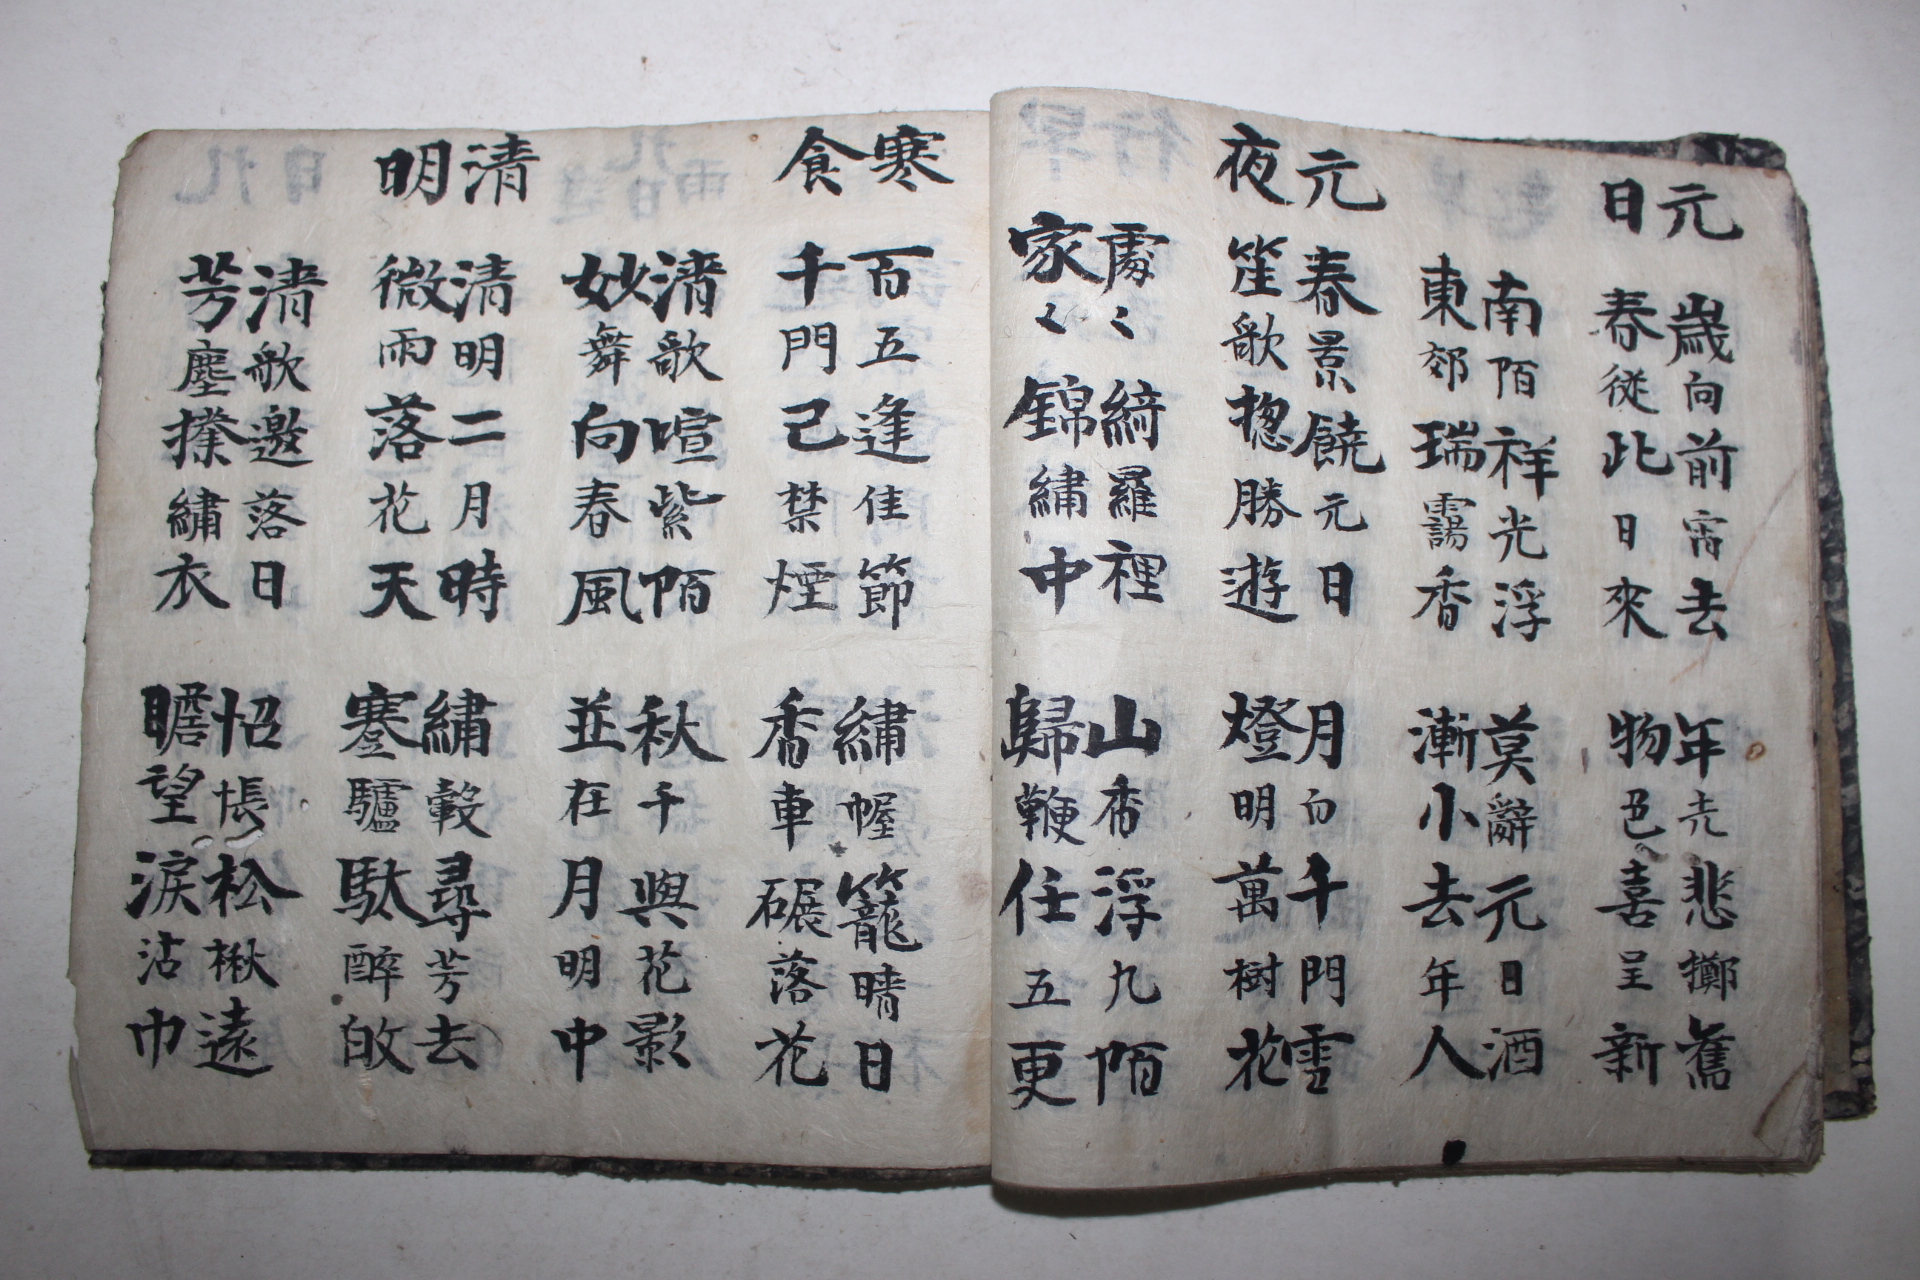 元日
歲向前宵去
春從此日來
年光悲擲舊
物色喜呈新
南陌祥光浮
東郊瑞靄香
莫辭元日酒
漸小去年人
元夜
春景饒元日
笙歌揔勝遊
月白千門雪
燈明萬樹花
處〻綺羅裡
家〻錦繡中
山香浮九陌
歸鞭任五更
寒食
百五逢佳節
千門已禁煙
繡幄籠晴日
香車碾落花
清歌喧紫陌
妙舞向春風
秋千與花影
並在月明中
清明
清明二月時
微雨落花天
繡轂尋芳去
蹇驢馱醉皈
清歌邀落日
芳塵撲繡衣
怊悵松楸遠
瞻望淚沾巾